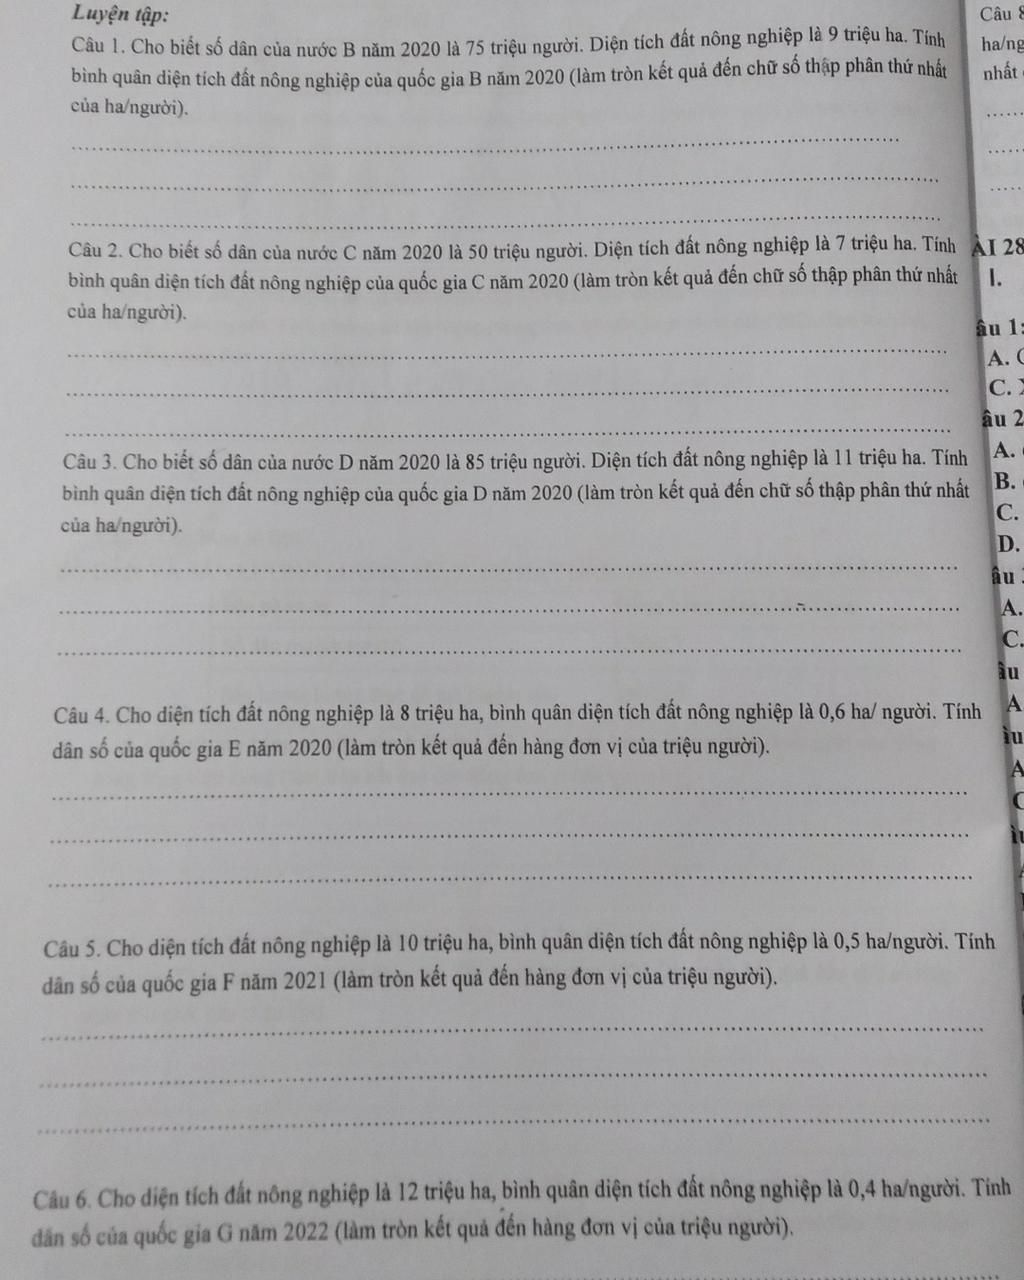 Luyện tập:
Câu 1. Cho biết số dân của nước B năm 2020 là 75 triệu người. Diện tích đất nông nghiệp là 9 triệu ha. Tính
bình quân diện tích đất nông nghiệp của quốc gia B năm 2020 (làm tròn kết quả đến chữ số thập phân thứ nhất
của ha/người).
Câu 2. Cho biết số dân của nước C năm 2020 là 50 triệu người. Diện tích đất nông nghiệp là 7 triệu ha. Tính
bình quân diện tích đất nông nghiệp của quốc gia C năm 2020 (làm tròn kết quả đến chữ số thập phân thứ nhất
của ha/người).
Câu 3. Cho biết số dân của nước D năm 2020 là 85 triệu người. Diện tích đất nông nghiệp là 11 triệu ha. Tính
bình quân diện tích đất nông nghiệp của quốc gia D năm 2020 (làm tròn kết quả đến chữ số thập phân thứ nhất
của ha/người).
Câu 4. Cho diện tích đất nông nghiệp là 8 triệu ha, bình quân diện tích đất nông nghiệp là 0,6 ha/ người. Tính
dân số của quốc gia E năm 2020 (làm tròn kết quả đến hàng đơn vị của triệu người).
Câu 5. Cho diện tích đất nông nghiệp là 10 triệu ha, bình quân diện tích đất nông nghiệp là 0,5 ha/người. Tính
dân số của quốc gia F năm 2021 (làm tròn kết quả đến hàng đơn vị của triệu người).
Câu 6. Cho diện tích đất nông nghiệp là 12 triệu ha, bình quân diện tích đất nông nghiệp là 0,4 ha/người. Tính
dân số của quốc gia G năm 2022 (làm tròn kết quả đến hàng đơn vị của triệu người).
Câu 8
ha/ng
nhất
ÀI 28
I.
âu 1:
A.
C.
âu 2
A.
B.
C.
D.
âu
A.
C.
âu
A
A